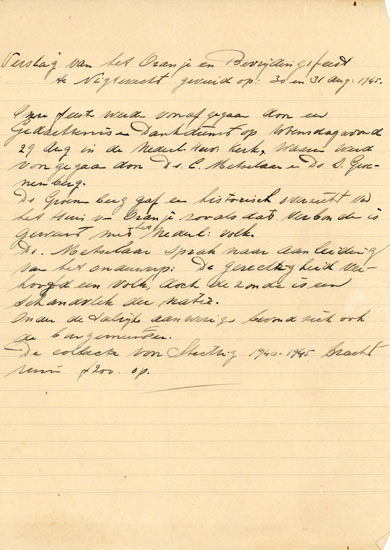 Verslag van het Oranje en Bevrijdingsfeest
te Nigtevecht gevierd op: 30 en 31 aug. 1945.
Onze feeste werde vooraf gegaan door een
Gedachtenis en Dankdienst op Woensdagavond
29 Aug in de Nederl Herv Kerk, waarin werd
voor gegaan door Ds. C. Metselaar en Ds. D. Groe-
nenberg.
Ds Groenenberg gaf een historisch overzicht van
het Huis v. Oranje zooals dat verbonden is
geweest met het Nederl. volk.
Ds. Metselaar sprak naar aanleiding
van het onderwerp: De gerechtigheid ver-
hoogd een volk, doch de zonde is een
schandvlek der natie.
Onder de talrijke aanwezige bevond zich ook
de burgemeester.
De collecte voor Stichting 1940-1945 bracht
ruim f 200. op.